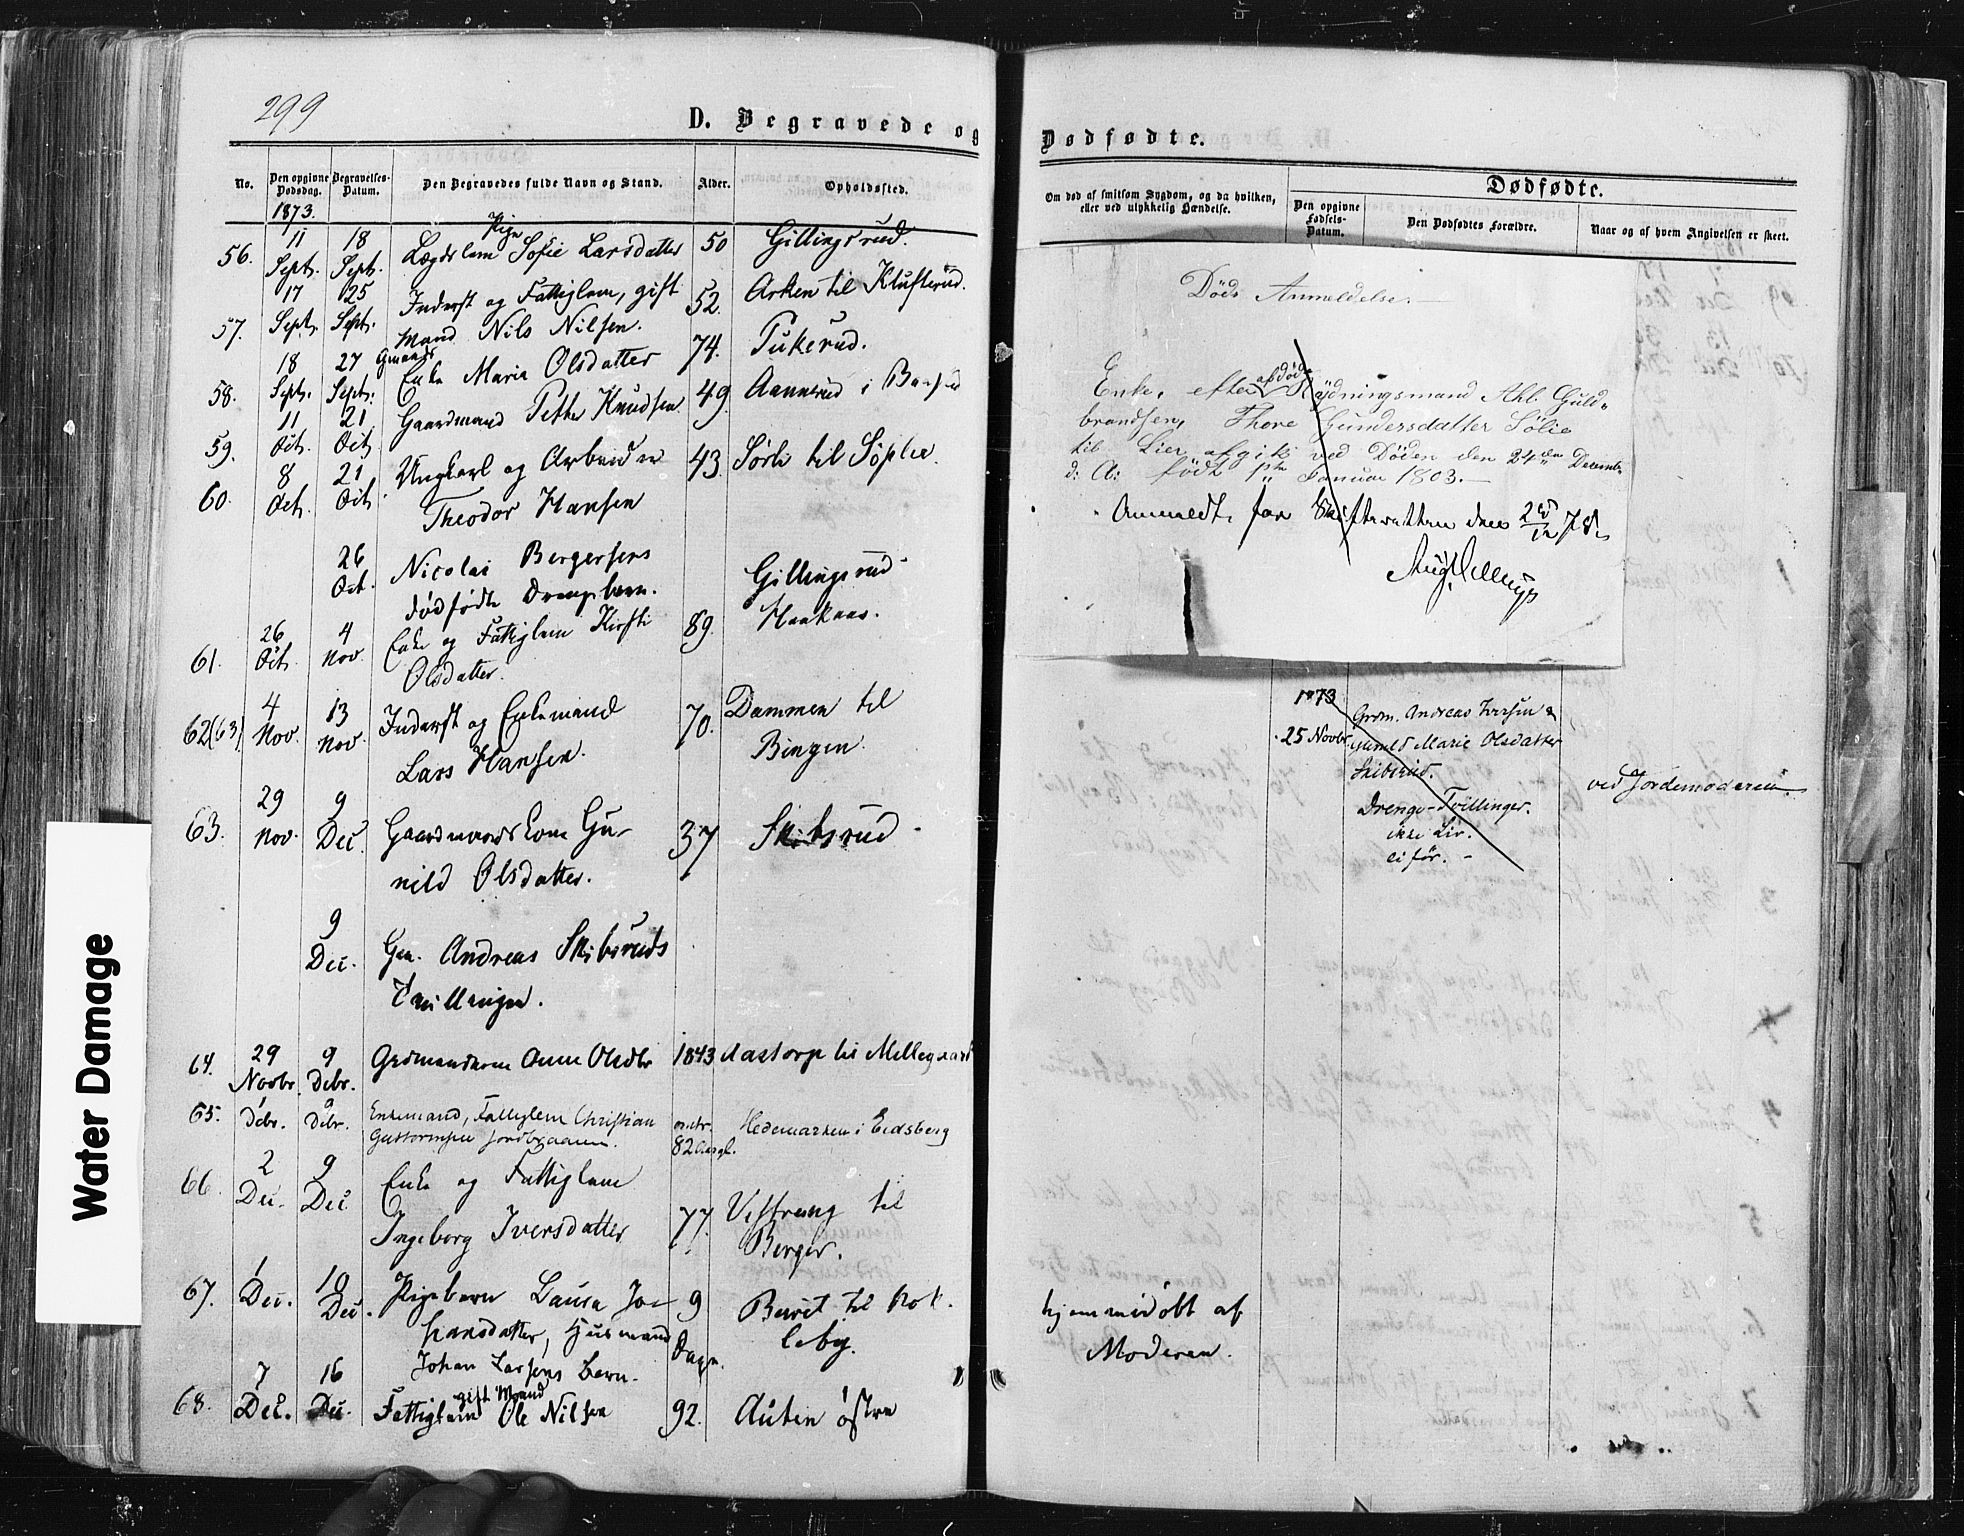 299
D. Begravede og
No.
Den opgivne Dødsdag.
Begravelses-Datum.
Den Begravedes fulde Navn og Stand.
Alder.
Opholdssted.
1873.
56. 11 Sept. 18 Sept. Lægdslem Pige Sofie Larsdatter 50 Gillingsrud.
57. 17 Sept. 25 Sept. Inderst og Fattiglem, gift 52. Arken til Klufterud.
Mand Nils Nilsen.
58. 18 Sept. 27 Sept. Gmands Enke Maria Olsdatter 74. Tukerud.
59. 11 Oct. 21 Oct. Gaardmand Petter Knudsen 49. Aannerud i
60. 8 Oct. 21 Oct. Ungkarl og Arbeider 43. Sørli til
Theodor Hansen
26 Oct. Nicolai Bergersens Gillingsrud
dødfødte Drengebarn.
61. 26 Oct. 4 Nov. Enke og Fattiglem Kirsti 89. Haakaas.
Olsdatter.
62(63) 4 Nov. 13 Nov. Inderst og Enkemand 70. Dammen til
Lars Hansen. Bingen.
63. 29 Nov. 9 Dec. Gaardmandskone Gu- 37 Skibsrud
nild Olsdatter.
9 Dec. Gm. Andreas Skibsruds
Tvillinger.
64. 29 Novbr. 9 Dcbr. Grdmandskone Anne Olsdtr 1843 Aastorp til Mellegaard
65. 1 Dcbr. 9 Dcbr. Enkemand, Fattiglem Christian omtr. Hedemarken i Eidsberg
Guttormsen 82 Aar gl.
66. 2 Dec. 9 Dec. Enke og Fattiglem
Ingeborg Iversdatter 77. Vestreng til
Berger.
67. 1 Dec. 10 Dec. Pigebarn Laura Jo- 9 til Rok-
hansdatter, Husmand Dage. keby.
Johan Larsens Barn.
68. 7 Dec. 16 Dec. Fattiglem gift Mand Ole Nilsen 92. Auten østre
Dødfødte.
Om død af smitsom Sygdom, og da hvilken,
eller ved ulykkelig Hændelse.
Dødfødte.
Den opgivne Fødsels-Datum.
Den Dødfødtes Forældre.
Naar og af hvem Angivelsen er skeet.
Døds Anmeldelse.
Enke, efter afdøde Rydningsmand Ahl. Guld-
brandsen, Thore Gundersdatter Sølie
til Lier afgik ved Døden den 24de Decembr
d: A: født 1ste Januar 1803.
Anmeldt for Skifteretten den
1873
25 Novbr.
Grdm. Andreas Iversen &
Gunild Marie Olsdatter
Skibsrud.
Drenge-Tvillinger.
ikke Liv.
ei før.
ved Jordemoderen.
hjemmedøbt af
Moderen.
Water Damage